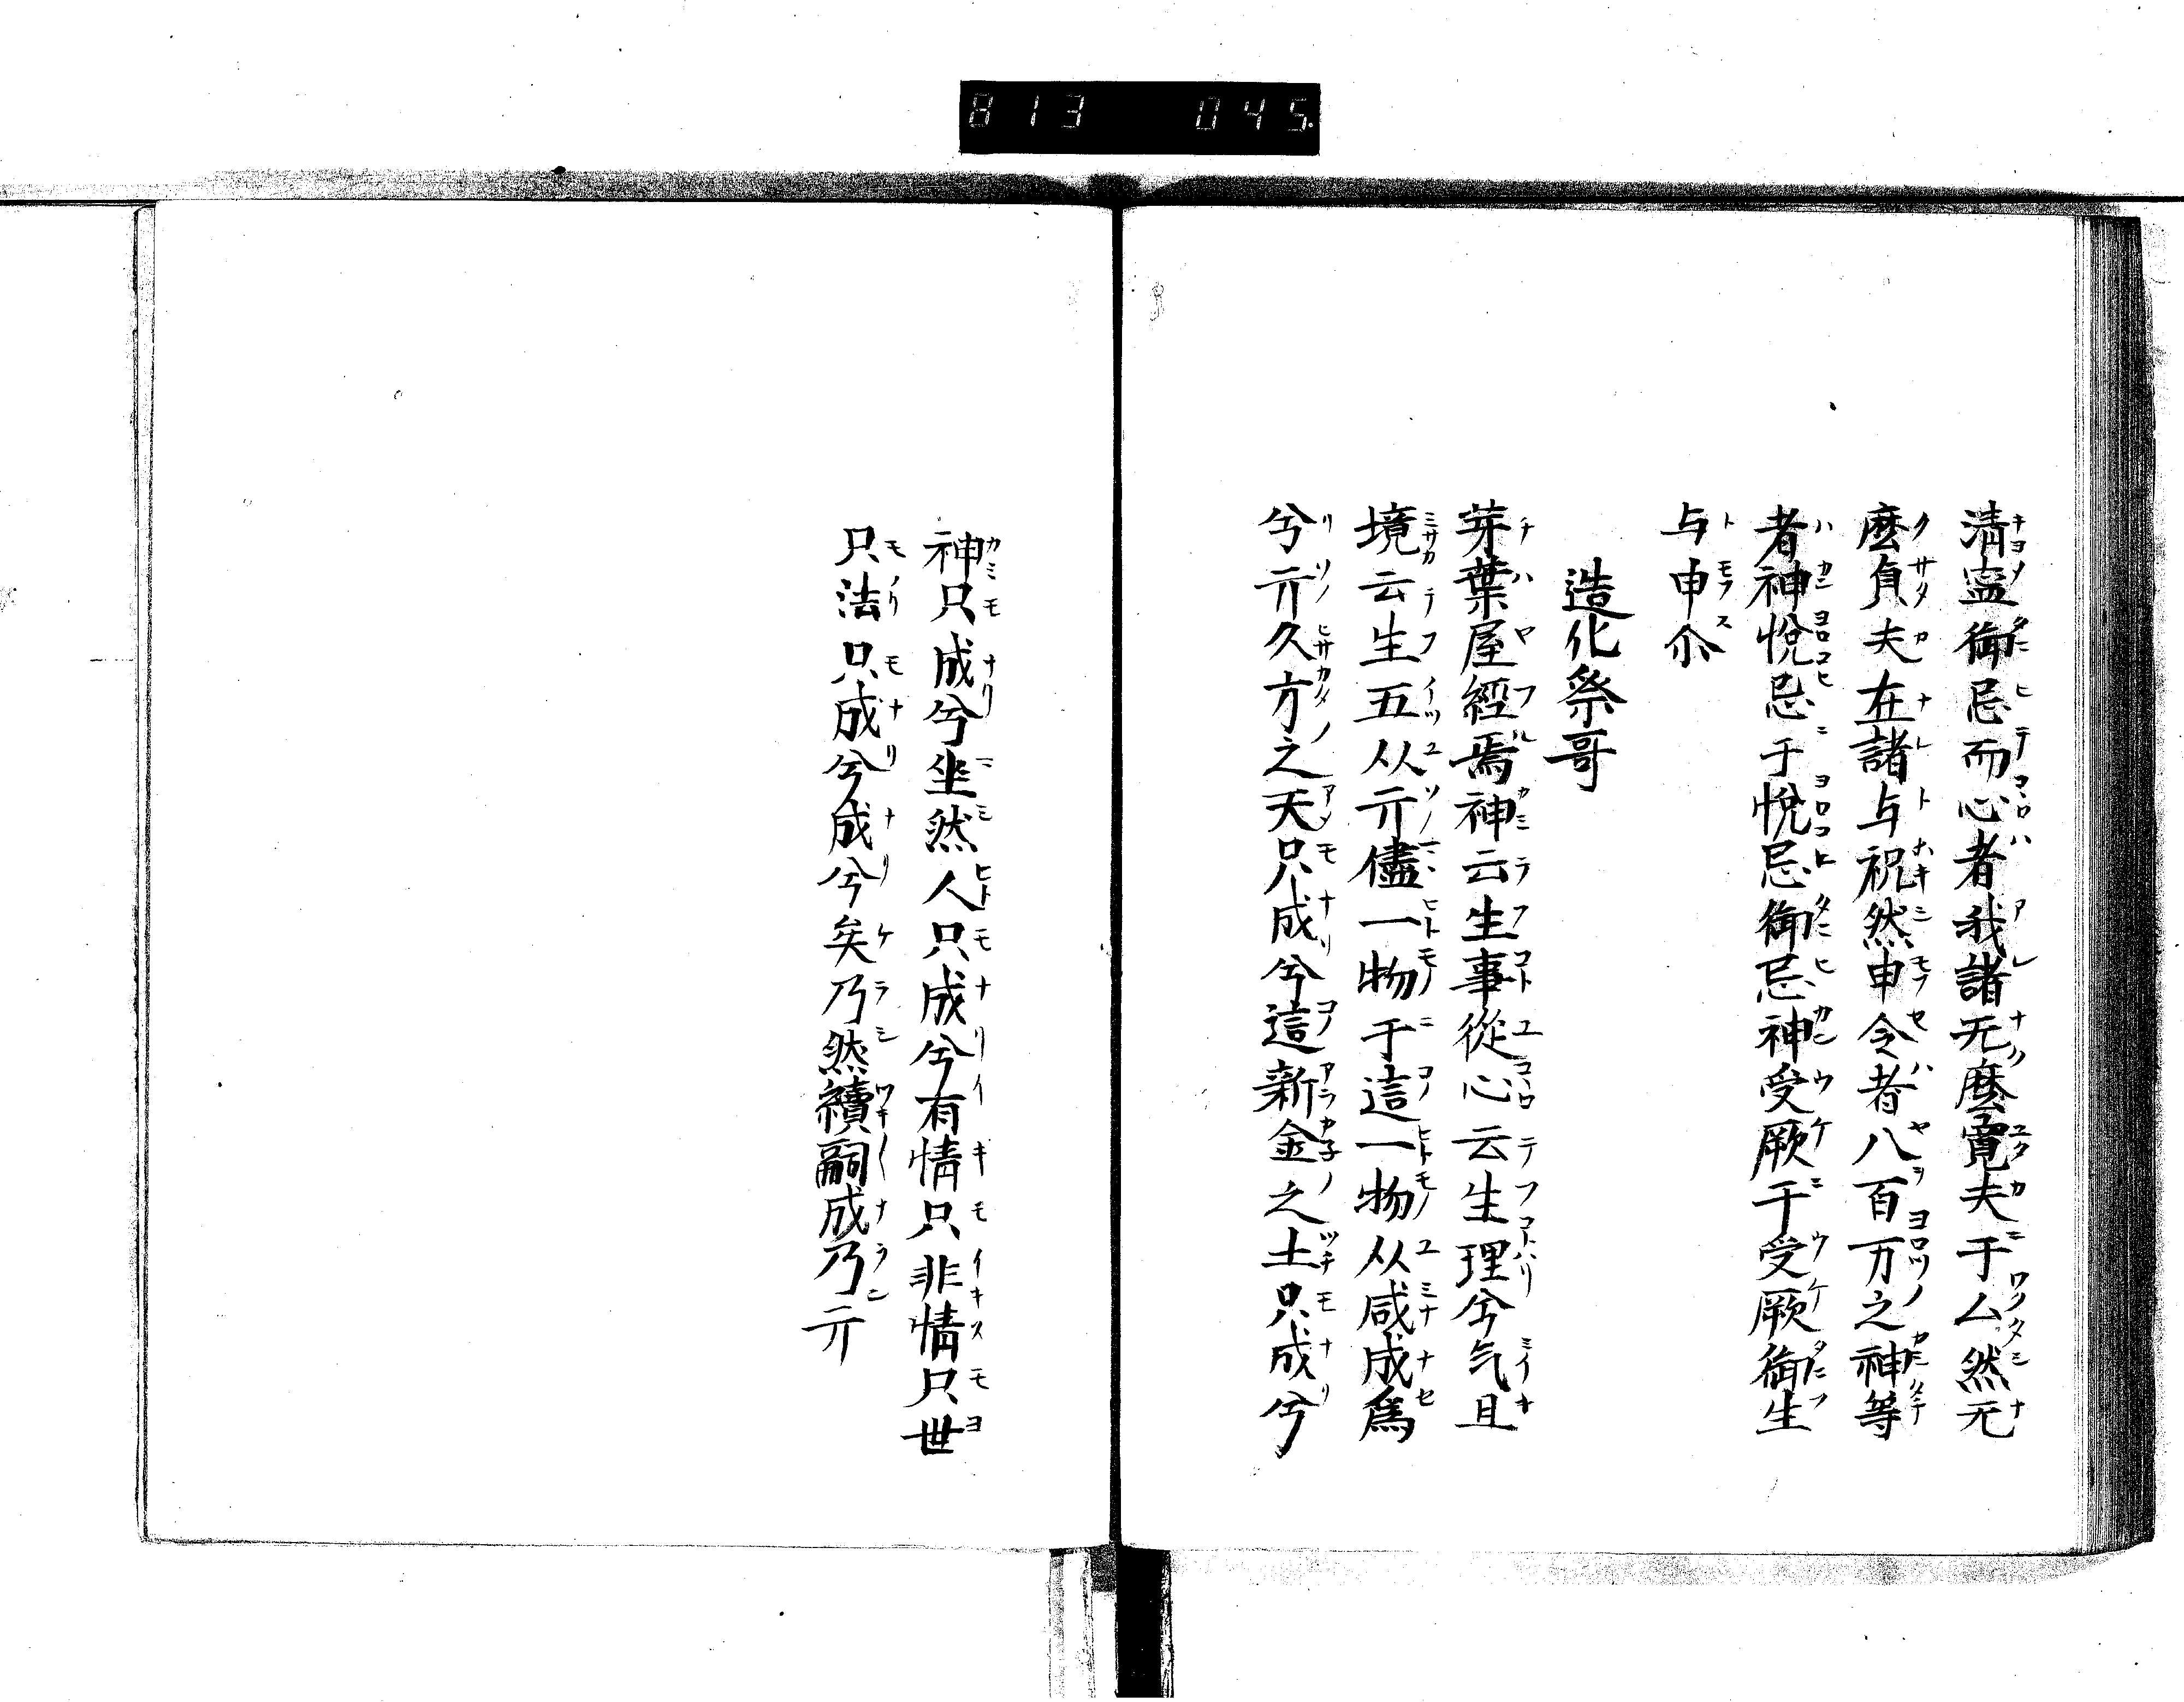 813 045
清寍御忌而心者我諸无麽寛夫于厶然无
麽負夫在諸与祝然申令者八百万之神等
者神悅忌于悅忌御忌神受厥于受厥御生
与申尒
造化祭哥
芽葉屋經焉神云生事從心云生理兮气且
境云生五从亓儘一物于這一物从咸成爲
兮亓久方之天只成兮這新金之土只成兮
神只成兮坐然人只成兮有情只非情只世
只法只成兮成兮矣乃然續嗣成乃亓